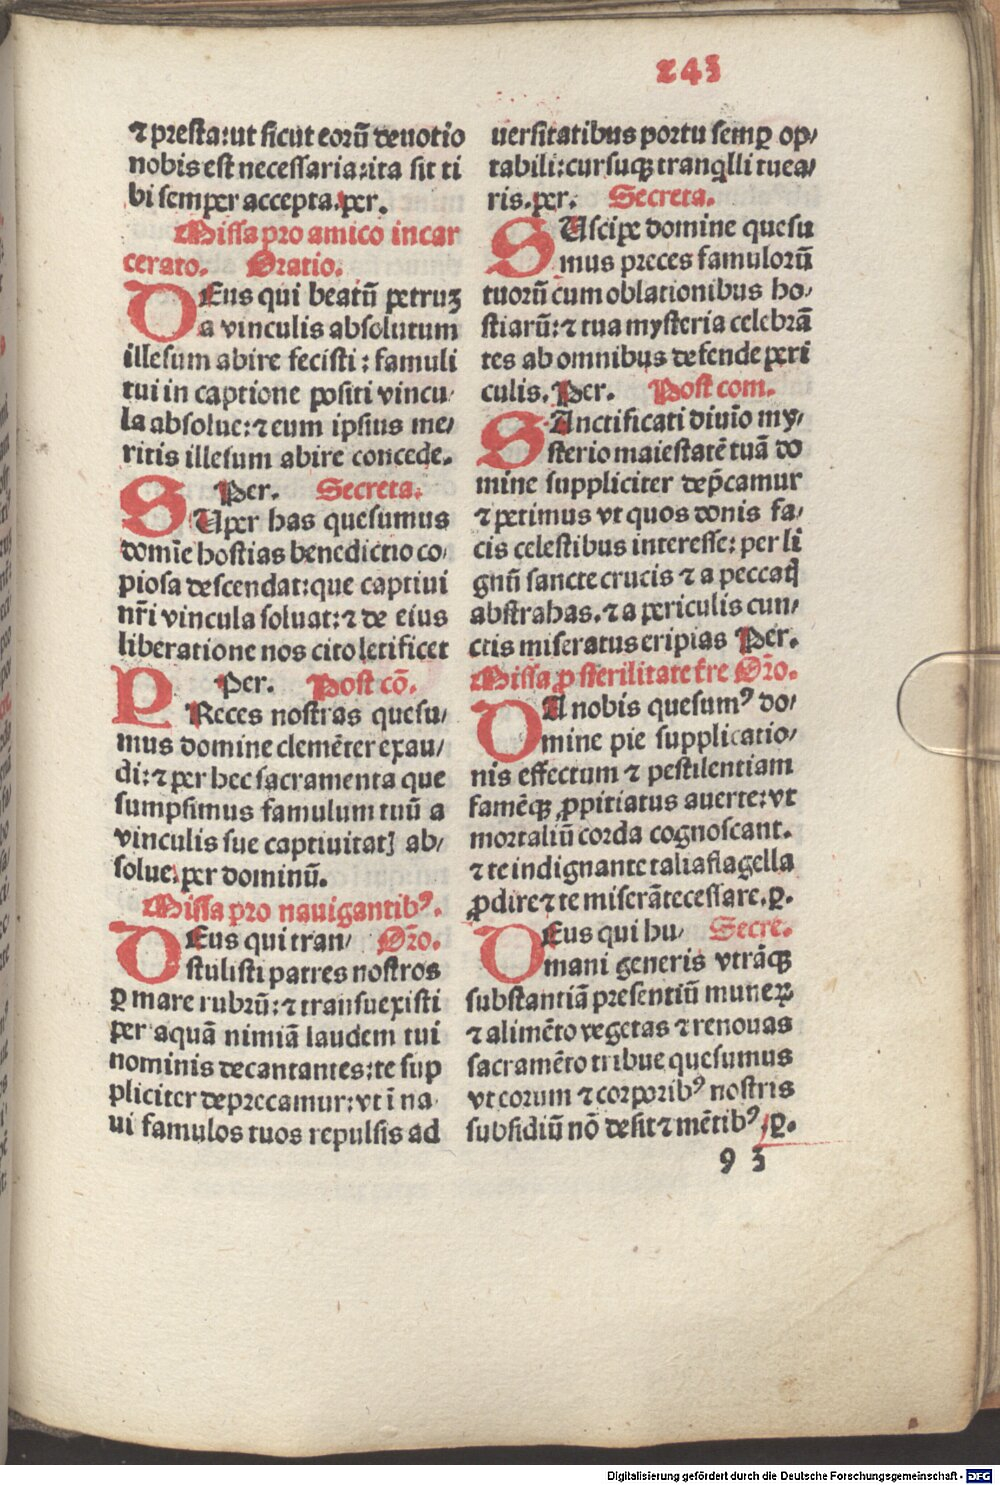 243
⁊ presta:ut sicut eorū deuotio
nobis est necessaria:ita sit ti
bi semper accepta.per.
Missa pro amico incar
cerato. Oratio.
DEus qui beatū petruȝ
a vinculis absolutum
illesum abire fecisti: famuli
tui in captione positi vincu-
la absolue:⁊ eum ipsius me/
ritis illesum abire concede.
Per. Secreta.
SUper has quesumus
domīe hostias benedictio co-
piosa descendat:que captiui
nr̄i vincula soluat:⁊ de eius
liberatione nos cito letificet
Per. Post cō.
PReces nostras quesu/
mus domine clemēter exau/
di:⁊ per hec sacramenta que
sumpsimus famulum tuū a
vinculis sue captiuitatꝭ ab/
solue.per dominū.
Missa pro nauigantibꝰ.
DEus qui tran/ Oȓo.
stulisti patres nostros
ꝑ mare rubrū:⁊ transuexisti
per aquā nimiā laudem tui
nominis decantantes:te sup
pliciter deprecamur:vt ī na-
ui famulos tuos repulsis ad
uersitatibus portu semꝑ op/
tabili:cursuqꝫ tranqͥlli tuea/
ris.per. Secreta.
SUscipe domine quesu
mus preces famulorū
tuorū cum oblationibus ho-
stiarū:⁊ tua mysteria celebrā
tes ab omnibus defende peri
culis.Per. Post com.
SAnctificati diuīo my/
sterio maiestatē tuā do
mine suppliciter dep̄camur
⁊ petimus vt quos donis fa/
cis celestibus interesse:per li
gnū sancte crucis ⁊ a peccatꝭ
abstrahas.⁊ a periculis cun/
ctis miseratus eripias Per.
Missa ꝓ sterilitate tr̄e Oȓo.
DA nobis quesumꝰ do/
mine pie supplicatio/
nis effectum ⁊ pestilentiam
famēqꝫ ꝓpitiatus auerte:vt
mortaliū corda cognoscant.
⁊ te indignante talia flagella
ꝓdire ⁊ te miserāte cessare.ꝑ.
DEus qui hu- Secre.
mani generis vtrāqꝫ
substantiā presentiū muneꝝ
⁊ alimēto vegetas ⁊ renouas
sacramēto tribue quesumus
vt eorum ⁊ corporibꝰ nostris
subsidiū nō desit ⁊ mētibꝰ.ꝑ.
9 3
Digitalisierung gefördert durch die Deutsche Forschungsgemeinschaft - DFG